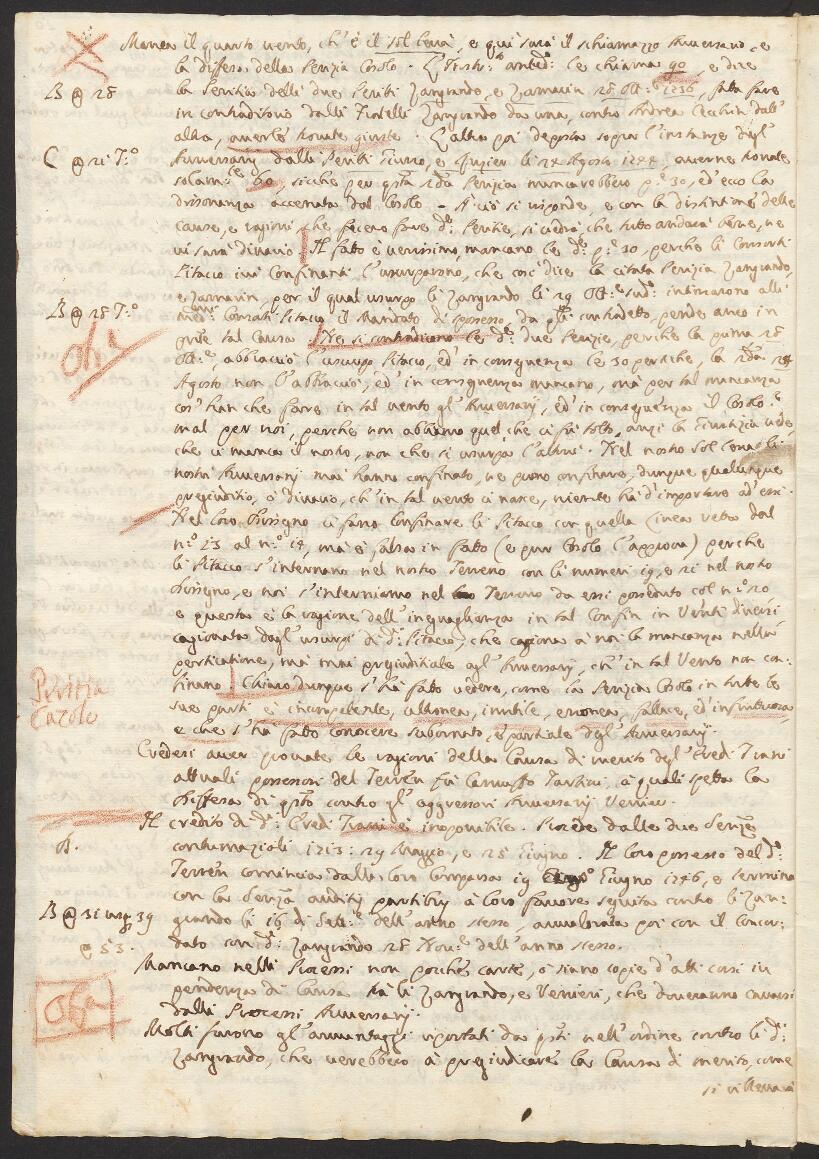 Manca il quarto vento, ch'è il Sol levà, e quì sarà il schiamazzo Avversario e
la diffesa della Perizia Cosolo. L'Instr.to antid.o le chiama 90, e dice
B @ 28
la Peritia delli due Periti Zangrando, e Zarnavin 28 Ott.e 1236, fatta fare
in contraditorio dalli Fratelli Zangrando da una, contro Andrea Cecchin dall'
altra, averle trovate giuste. L'altra poi deposta sopra l'instanze degl'
C @ 21 T.o
Avversarj dalli Periti e Agosto 1244 averne trovate
solam.te 60, sicche per q.sta 2da Perizia mancarebbero p.e 30, ed ecco la
dissonanza accenata dal Cosolo. A ciò si risponde, e con la distintione delle
cause, e ragioni che fecero fare d.e Peritie, si vedrà, che tutto anderà bene, ne
vi sarà divario. Il fatto è verissimo, mancano le d.e p.e 30, perche li Consorti
Pitacco ivi Confinanti l'usurparono, che così dice la citata Perizia Zangrando,
e Zarnavin, per il qual usurpo li Zangrando li 29 Ott.e sud.o intimarono alli
B @ 28 T.o
med.mi Consorti Pitacco il Mandato di spossesso, da q.sti contradetto, pende anco in
q.ste tal Causa. Ne si contradicono le d.e due Perizie, perche la prima 28
Ott.e, abbracciò l'usurpo Pitacco, ed in conseguenza le 30 pertiche, la 2da 24
Agosto non l'abbracciò, ed in conseguenza mancano, mà per tal mancanza
cos' han che fare in tal vento gl'Avversarj, ed in conseguenza il Cosolo. è
mal per noi, perche non abbiamo quel, che ci fù tolto, anzi la Giustizia vede,
che ci manca il nostro, non che si usurpa l'altrui. Nel nostro Sol levà li
nostri Avversarj mai hanno confinato, ne pono confinare, dunque qualunque
pregiuditio, ò divario, ch'in tal vento ci nasce, niente hà d'importare ad essi.
Nel loro Dissegno ci fano Confinare li Pitacco con quella linea retta dal
n.o 13 al n.o 14, mà è falso in fatto (e pur Cosolo l'approva) perche
li Pitacco s'internano nel nostro Terreno con li numeri 19, e 21 nel nostro
Dissegno, e noi s'interniamo nel Terreno da essi posseduto col n.o 20
e questa è la ragione dell'inguaglianza in tal Confin in Venti diversi
cagionata dagl'usurpi di d.i Pitacco, che cagiona à noi la mancanza nella
perticatione, mà mai pregiuditiale agl'Avversarj, ch'in tal Vento non con-
finano. Chiaro dunque s'hà fatto vedere, come la Perizia Cosolo in tutte le
Peritia
Cazolo
sue parti è incompetente, erronea, inutile, erronea, fallace, ed infruttuosa
e che s'hà fatto conoscere subornato, e partiale degl'Avversarj.
Credesi aver provate le ragioni della Causa di merito degl'Eredi Trani
attuali possessori del Terren fù Camuffo Tartini, à quali spetta la
Diffesa di q.sto contro gl'aggressori Avversarj Venier.
Il credito di d.i Eredi Trani è inoponibile. Procede dalle due Senze
contumaziali 1213: 29 Maggio, e 25 Giugno. Il loro possesso del d.o
Terren comincia dalla loro Comparsa 19 Giugno 1246, e termina
con la Senza auditis partibus à loro favore seguita contro li Zan-
B @ 31 usq. 39
grando li 16 di Sett.e dell'anno stesso, avvalorata poi con il Concor-
@ 53.
dato con d.i Zangrando 28 Nov.e dell'anno stesso.
Mancano nelli Processi non poche carte, ò siano copie d'atti corsi in
pendenza di Causa trà li Zangrando, e Venieri, che doveranno cavarsi
dalli Processi Avversarj.
Molti furono gl'avvantaggi riportati da q.sti nell'ordine contro li d.i
Zangrando, che verebbero à pregiudicare la Causa di merito, come
si rileverà